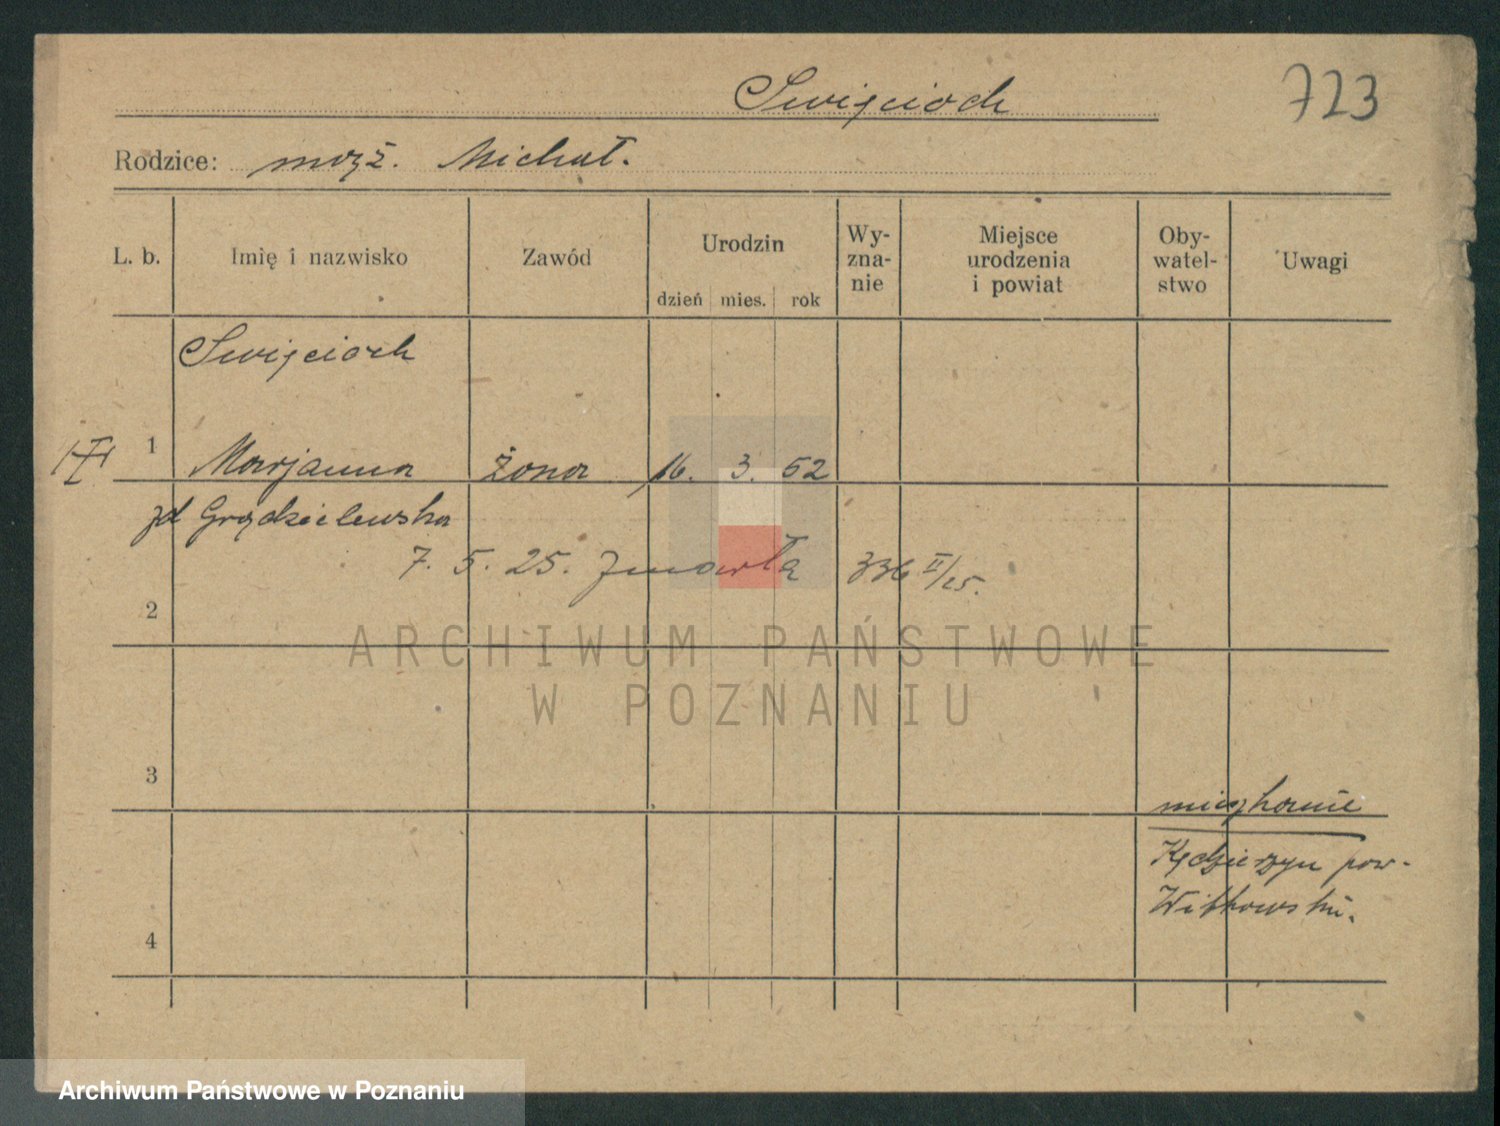 Swięcioch 723
Rodzice: mąż. Michał.
L. b. Imię i nazwisko Zawód Urodzin dzień mies. rok Wyznanie Miejsce urodzenia i powiat Obywatelstwo Uwagi
Swięcioch
1 Marjanna żona 16. 3. 52
zd Grądzielewska
7. 5. 25. Zmarła 336 II/25.
2
ARCHIWUM PAŃSTWOWE
W POZNANIU
3
mieszkanie
Kędzierzyn pow.
Witkowski.
4
Archiwum Państwowe w Poznaniu